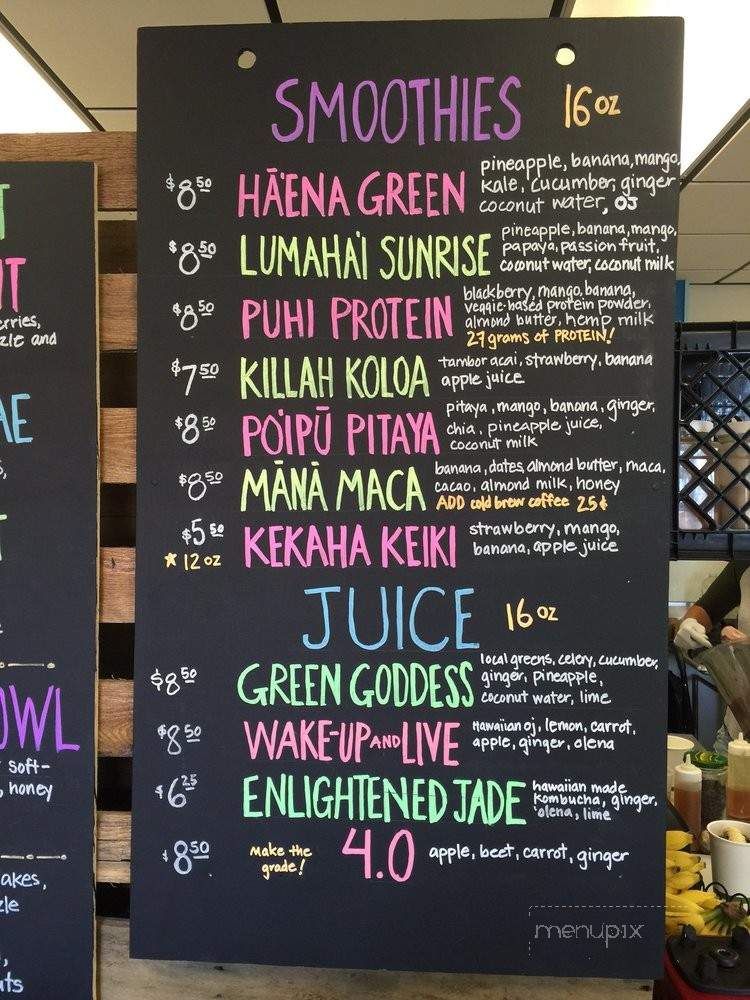 SMOOTHIES 16 oz
$8.50 HĀ'ENA GREEN pineapple, banana, mango,
kale, cucumber, ginger
coconut water, OJ
$8.50 LUMAHA'I SUNRISE pineapple, banana, mango,
papaya, passion fruit,
coconut water, coconut milk
$8.50 PUHI PROTEIN blackberry, mango, banana,
veggie-based protein powder,
almond butter, hemp milk
27 grams of PROTEIN!
$7.50 KILLAH KOLOA tambor acai, strawberry, banana
apple juice
$8.50 PO'IPŪ PITAYA pitaya, mango, banana, ginger,
chia, pineapple juice,
coconut milk
$8.50 MĀNĀ MACA banana, dates, almond butter, maca,
cacao, almond milk, honey
ADD cold brew coffee 25¢
$5.50 KEKAHA KEIKI strawberry, mango,
★ 12 oz banana, apple juice
JUICE 16 oz
$8.50 GREEN GODDESS local greens, celery, cucumber,
ginger, pineapple,
coconut water, lime
$8.50 WAKE-UP AND LIVE Hawaiian oj, lemon, carrot,
apple, ginger, olena
$6.25 ENLIGHTENED JADE hawaiian made
kombucha, ginger,
'olena, lime
$8.50 make the
grade! 4.0 apple, beet, carrot, ginger
zle and
AE
OWL
soft-
, honey
akes,
zle
menupix